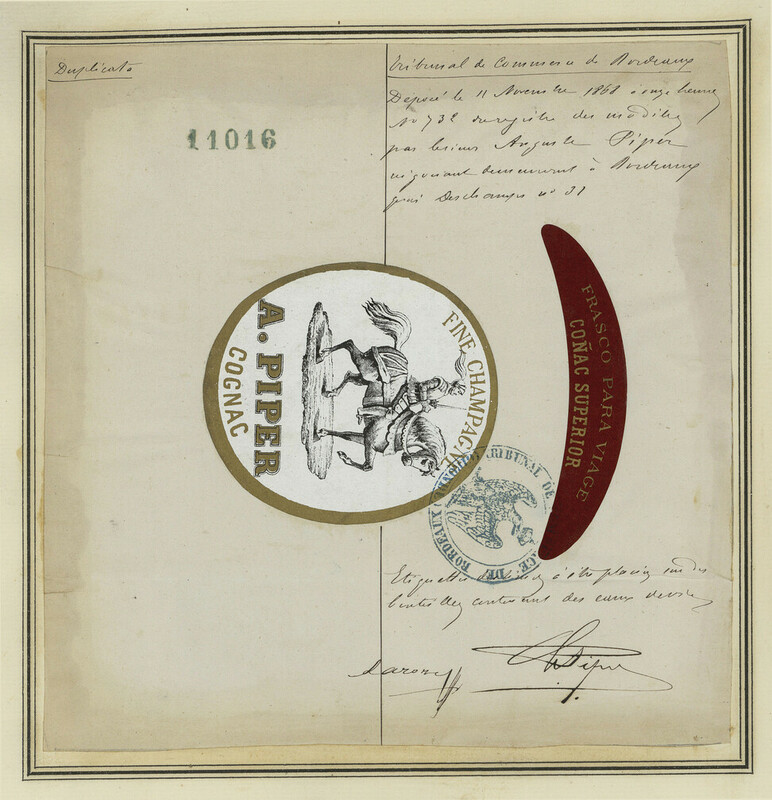 Duplicata
11016
Tribunal de Commerce de Bordeaux
Déposé le 11 Novembre 1868 à onze heures
No 732 du registre des modèles
par le sieur Auguste Piper
négociant demeurant à Bordeaux
Deschamps no 31
FINE CHAMPAGNE
A. PIPER
COGNAC
FRASCO PARA VIAGE
COÑAC SUPERIOR
TRIBUNAL DE
BORDEAUX
Etiquettes à être placées sur des
bouteilles contenant des eaux de vie
A Piper